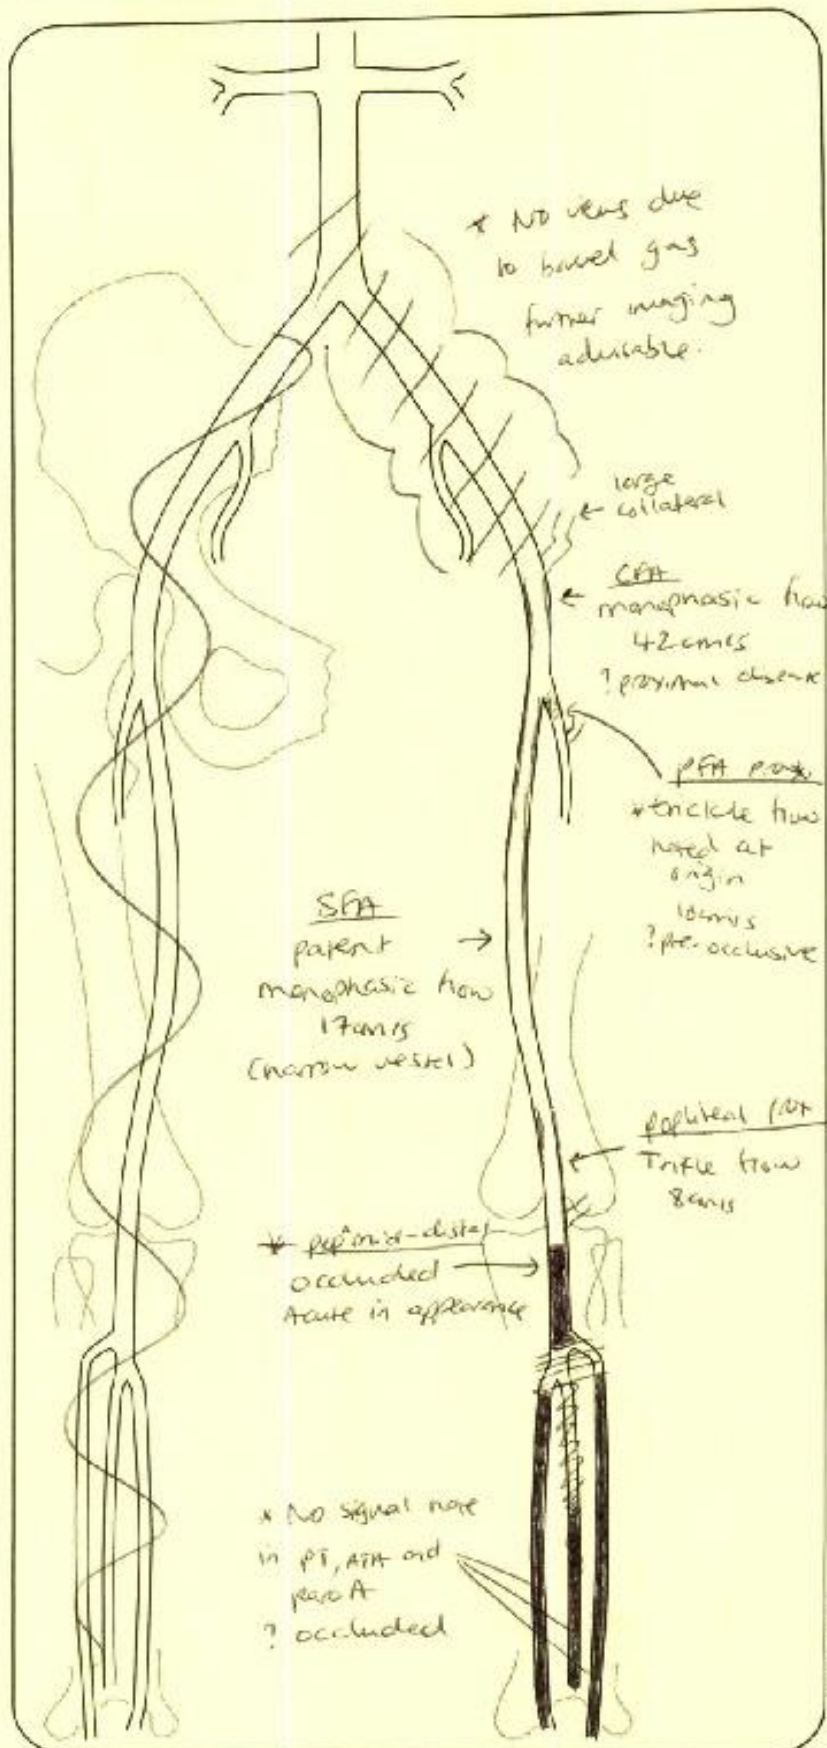 * No views due
to bowel gas
further imaging
advisable.
large
collateral
CFA
monophasic flow
42cm/s
? proximal disease
PFA prox
* trickle flow
noted at
origin
10cm/s
? pre-occlusive
SFA
patent
monophasic flow
17cm/s
(narrow vessel)
popliteal prox
Trickle flow
8cm/s
* pop mid-distal
occluded
Acute in appearance
* No signal
in PT, ATA and
pero A
? occluded